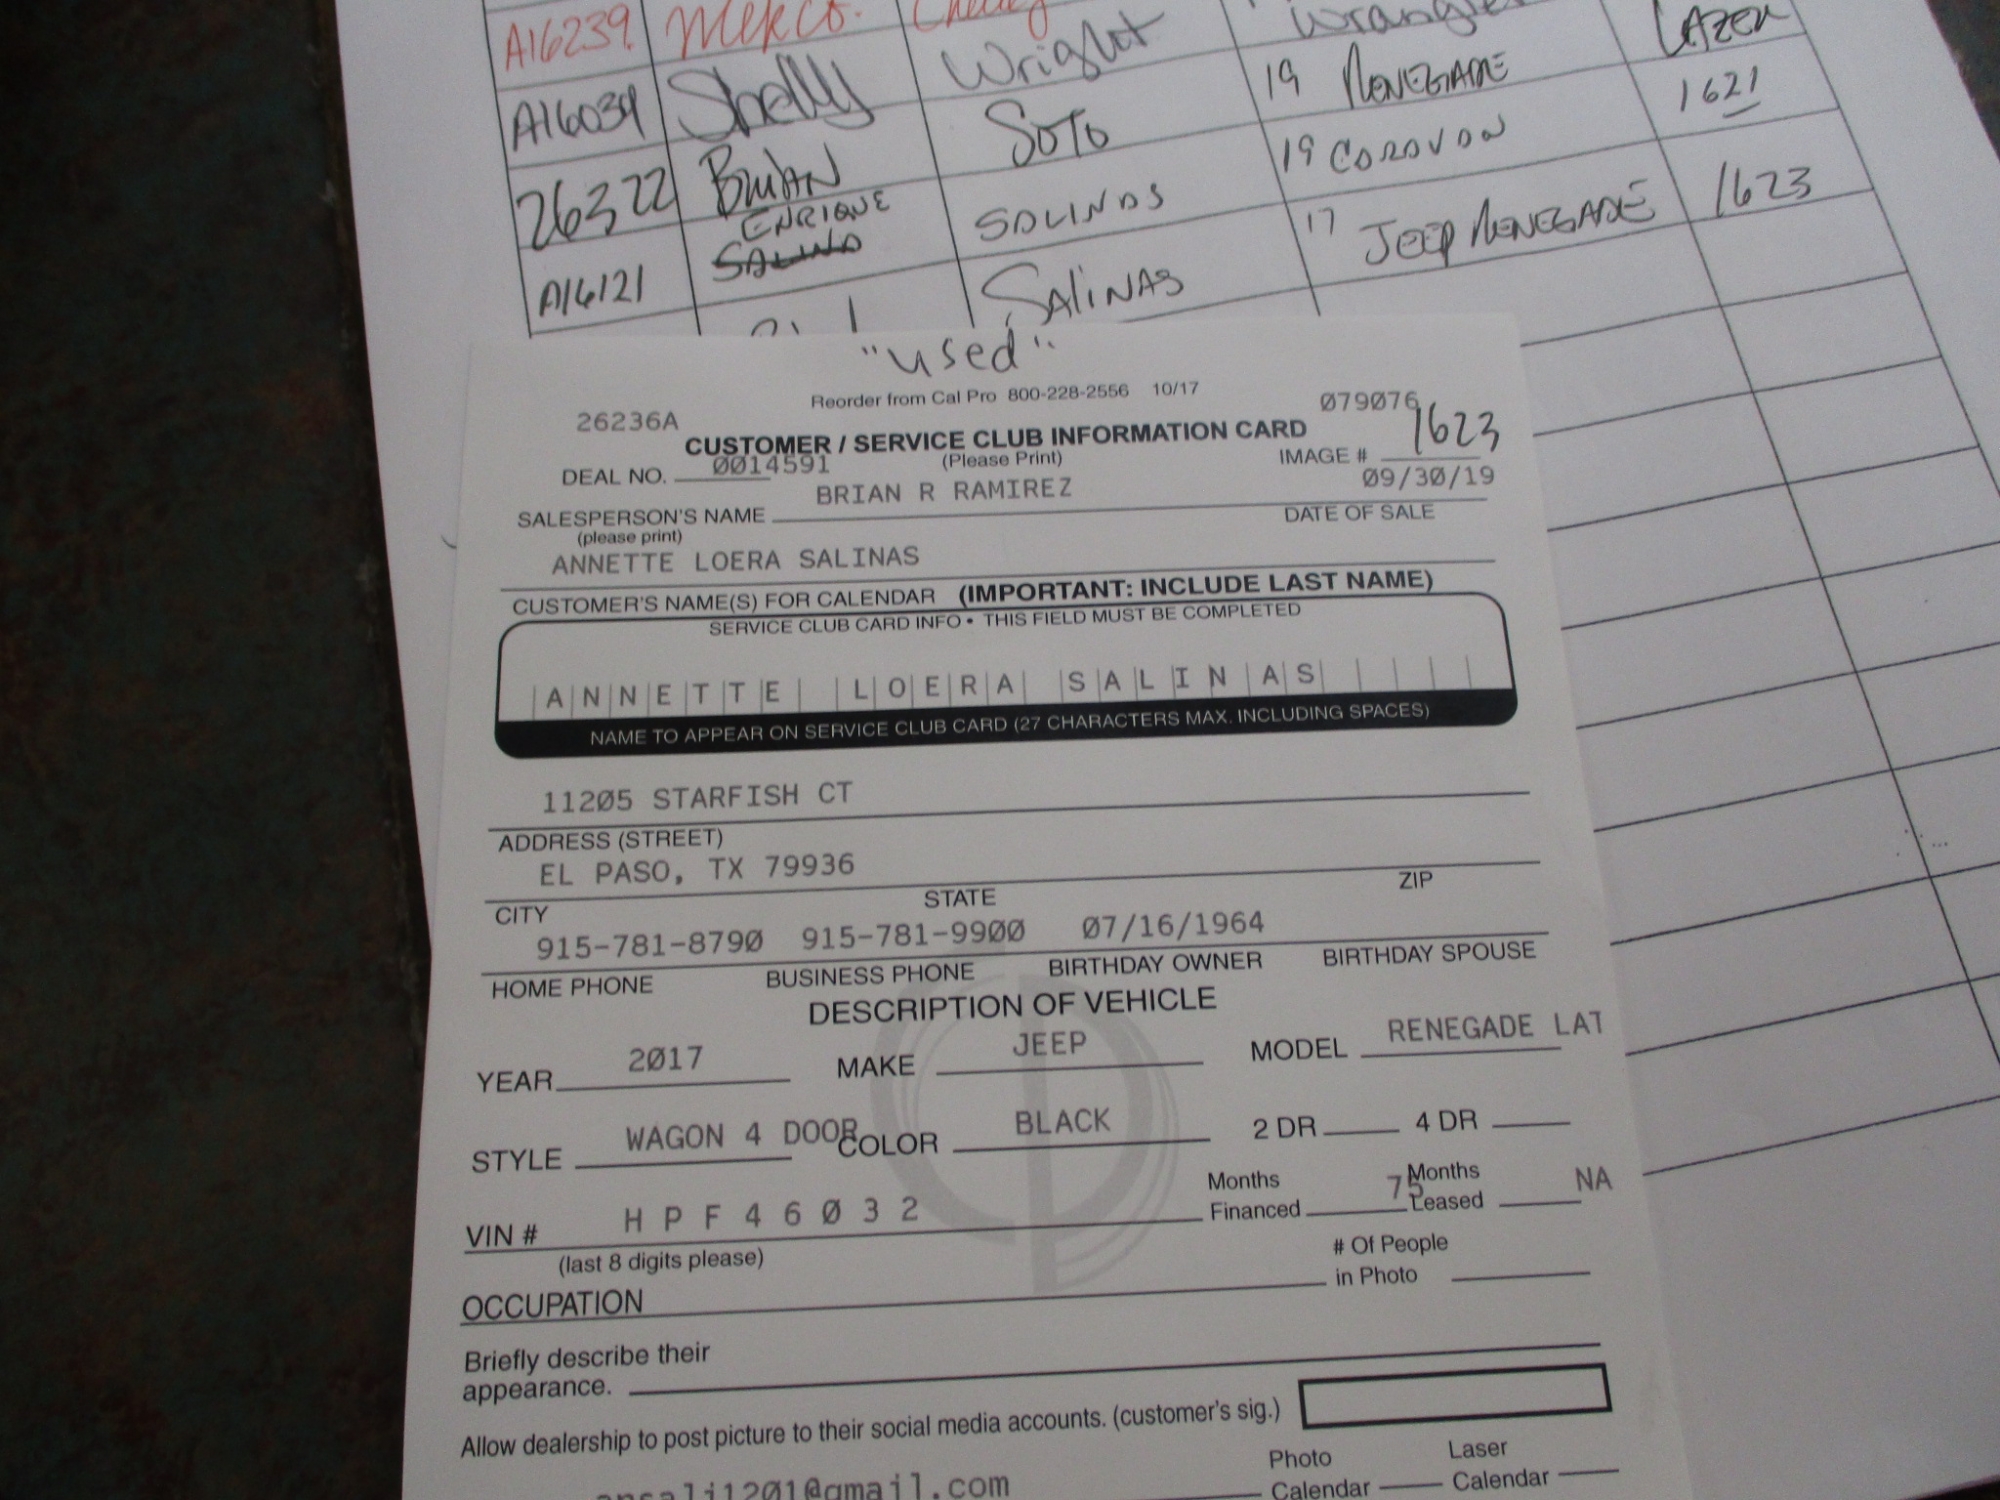 A16239. MERCO.
A16034 Shelly Wright Wrangler LAZER
26322 BRIAN SOTO 19 RENEGADE 1621
A16121 ENRIQUE SALINAS 19
17 JEEP RENEGADE 1623
SALINAS
"used"
Reorder from Cal Pro 800-228-2556 10/17
26236A 079076
CUSTOMER / SERVICE CLUB INFORMATION CARD 1623
DEAL NO. 0014591 (Please Print) IMAGE #
BRIAN R RAMIREZ 09/30/19
SALESPERSON'S NAME DATE OF SALE
(please print)
ANNETTE LOERA SALINAS
CUSTOMER'S NAME(S) FOR CALENDAR (IMPORTANT: INCLUDE LAST NAME)
SERVICE CLUB CARD INFO • THIS FIELD MUST BE COMPLETED
ANNETTE LOERA SALINAS
NAME TO APPEAR ON SERVICE CLUB CARD (27 CHARACTERS MAX. INCLUDING SPACES)
11205 STARFISH CT
ADDRESS (STREET)
EL PASO, TX 79936
CITY STATE ZIP
915-781-8790 915-781-9900 07/16/1964
HOME PHONE BUSINESS PHONE BIRTHDAY OWNER BIRTHDAY SPOUSE
DESCRIPTION OF VEHICLE
YEAR 2017 MAKE JEEP MODEL RENEGADE LAT
STYLE WAGON 4 DOOR COLOR BLACK 2 DR 4 DR
VIN # HPF46032 Months Financed 75 Months Leased NA
(last 8 digits please)
OCCUPATION # Of People in Photo
Briefly describe their
appearance.
Allow dealership to post picture to their social media accounts. (customer's sig.)
Photo Calendar Laser Calendar